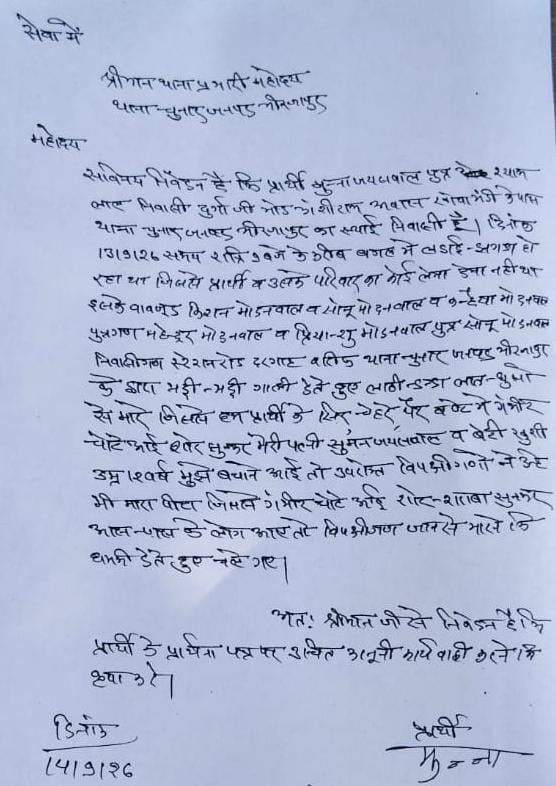 सेवा में
श्रीमान थाना प्रभारी महोदय
थाना-चुनार जनपद मीरजापुर
महोदय
सविनय निवेदन है कि प्रार्थी मुन्ना जयसवाल पुत्र श्याम
लाल निवासी दुर्गा जी मोड कांशीराम आवास के पास
थाना चुनार जनपद मीरजापुर का स्थाई निवासी है। दिनांक
13/9/26 समय रात्रि 9 बजे के करीब बगल मे लडाई-झगडा हो
रहा था जिससे प्रार्थी व उसके परिवार का कोई लेना देना नही था
इसके वावजूद किशन मोदनवाल व सोनू मोदनवाल व कन्हैया मोदनवाल
पुत्रगण महेन्द्र मोदनवाल व प्रियान्शु मोदनवाल पुत्र सोनू मोदनवाल
निवासीगण स्टेशन रोड दरगाह शरीफ थाना-चुनार जनपद मीरजापुर
के द्वारा भद्दी-भद्दी गाली देते हुए लाठी-डन्डा लात-घुसो
से मारे जिससे हम प्रार्थी के सिर चेहरे पैर मे गंभीर
चोटे आई शोर सुनकर मेरी पत्नी सुमन जयसवाल व बेटी खुशी
उम्र 12 वर्ष मुझे बचाने आई तो उपरोक्त विपक्षीगणो ने उन्हे
भी मारा पीटा जिससे गंभीर चोटे आई शोर-शराबा सुनकर
आस-पास के लोग आए तो विपक्षीजण जान से मारने कि
धमकी देते हुए चले गए।
अतः श्रीमान जी से निवेदन है कि
प्रार्थी के प्रार्थना पत्र पर उचित कानूनी कार्यवाही करने कि
कृपा करे।
दिनांक
14/9/26
प्रार्थी
मुन्ना